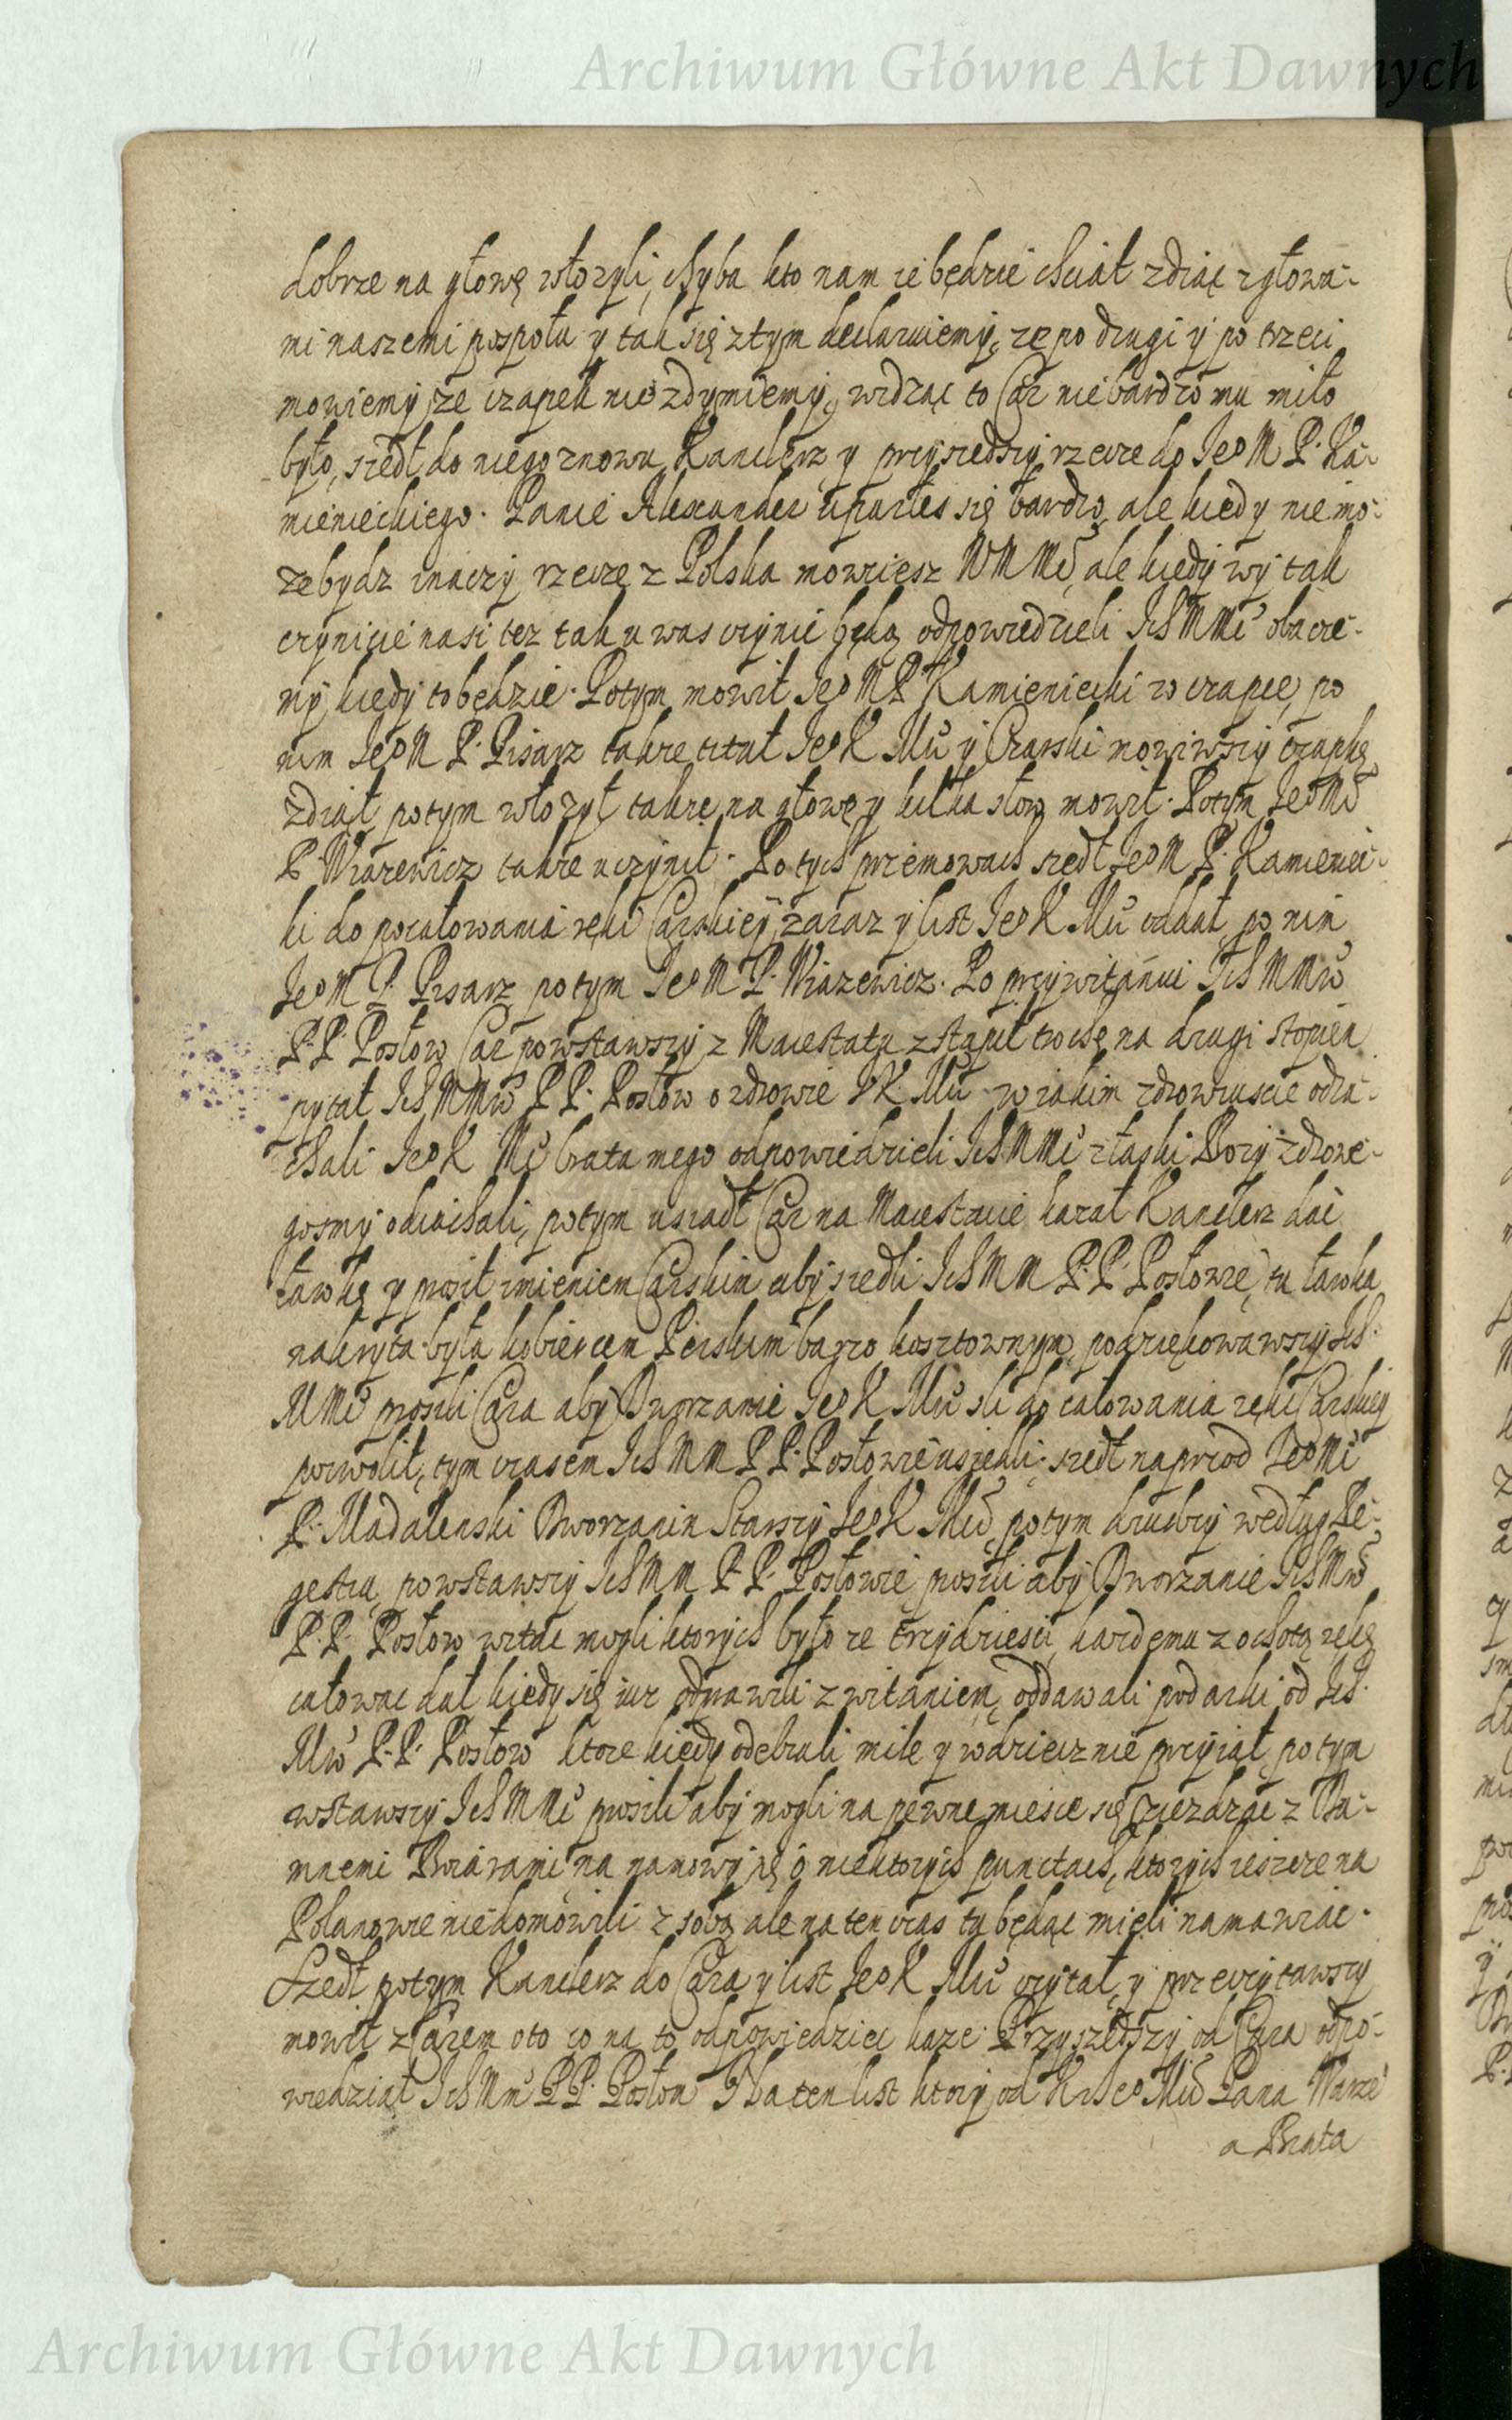 Archiwum Główne Akt Dawnych
dobrze na głowę włozyli, chyba kto nam ie będzie chciał zdiąc z głowa-
mi naszemi pospołu y tak się z tym declaruiemy, ze po drugi y po trzeci
mowiemy ze czapek nie zdymiemy, widząc to Car nie bardzo mu miło
było, szedł do niego znowu Kanclerz y przyszedszy rzecze do Jeo M P. Ka-
mienieckiego. Panie Alexander uparłes się bardzo ale kiedy nie mo-
ze bydz inaczy rzecze z Polska mowiesz WMMć, ale kiedy wy tak
czynicie nasi tez tak u was czynic będą odpowiedzieli IchMMć obacze-
my kiedy to będzie. Potym mowił Jeo M P Kamieniecki w czapce, po
nim Jeo M P. Pisarz takze titul Jeo K Mći y Czarski mowiwszy czapkę
zdiął potym włozył takze na głowę y kilka słow mowił. Potym Jeo Mć
P. Wiazewicz takze uczynił. Po tych przemowach szedł Jeo M P. Kamienie-
ki do pocałowania ręki Carskiey, zaraz y list Jeo K Mći oddał, po nim
Jeo M P. Pisarz potym Jeo M P. Wiazewicz. Po przywitaniu Ich MMći
P.P. Posłow Car powstawszy z Maiestatu zstąpił trochę na drugi stopien
pytał Ich MMći P P. Posłow o zdrowie JK Mći w iakim zdrowiuscie odia-
chali Jeo K Mć brata mego odpowiedzieli IchMMć z łaski Bozy zdrowe-
gosmy odiachali, potym usiadł Car na Maiestacie kazał Kanclerz dac
ławkę y prosił imieniem Carskim aby siedli Ich MM P.P. Posłowie, ta ławka
nakryta była kobiercem Perskim barzo kosztownym, podziękowawszy Ich
MMć prosili Cara aby Dworzanie Jeo K Mći szli do całowania ręki Carskiey
pozwolił, tym czasem Ich MM P P. Posłowie usiedli, szedł naprzod Jeo Mć
P. Madalenski Dworzanin Starszy Jeo K Mći, potym drudzy według Re-
gestru, powstawszy Ich MM P P. Posłowie prosili aby Dworzanie Ich Mći
P.P. Posłow witac mogli ktorych było ze trzydziesci, kazdemu z ochotą rękę
całowac dał kiedy się iuz odprawili z witaniem, oddawali podarki od Ich
Mći P.P. Posłow ktore kiedy odebrali mile y wdziecznie przyiął, potym
wstawszy Ich MMć prosili aby mogli na pewne miesce się ziezdzac z Du-
mnemi Boiarami na namowy o niektorych punctach, ktorych ieszcze na
Polanowie nie domowili z sobą ale na ten czas tu będąc mieli namawiac.
Szedł potym Kanclerz do Cara y list Jeo K Mći czytał, y przeczytawszy
mowił z Carem oto co na to odpowiedziec kaze. Przyszedszy od Cara odpo-
wiedział Ich Mm PP. Posłom Na ten list ktory od Kr Jeo Mći Pana Wasze
a Brata
Archiwum Główne Akt Dawnych